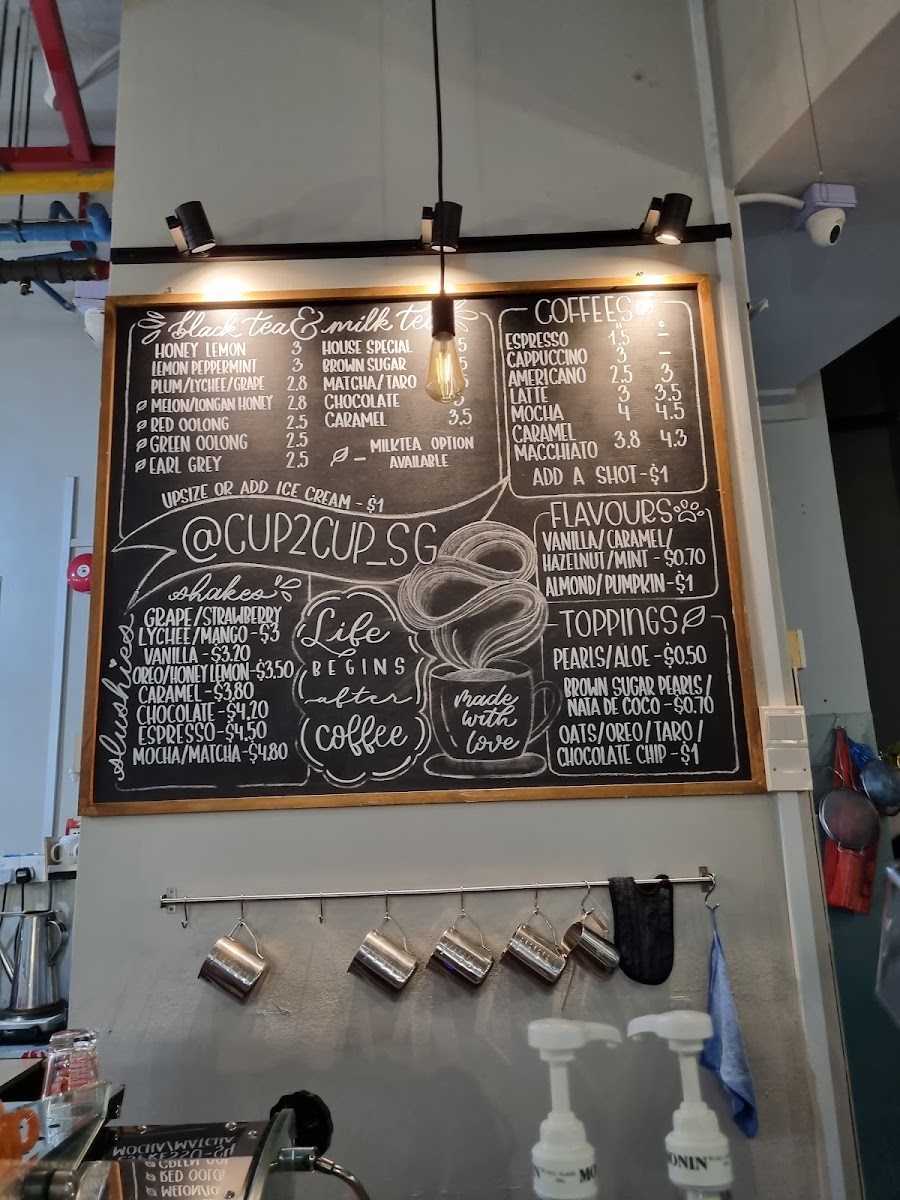 black tea & milk tea
HONEY LEMON 3
LEMON PEPPERMINT 3
PLUM/LYCHEE/GRAPE 2.8
MELON/LONGAN HONEY 2.8
RED OOLONG 2.5
GREEN OOLONG 2.5
EARL GREY 2.5
HOUSE SPECIAL
BROWN SUGAR
MATCHA/TARO
CHOCOLATE
CARAMEL 3.5
- MILKTEA OPTION
AVAILABLE
UPSIZE OR ADD ICE CREAM - $1
COFFEES
ESPRESSO 1.5 -
CAPPUCCINO 3 -
AMERICANO 2.5 3
LATTE 3 3.5
MOCHA 4 4.5
CARAMEL
MACCHIATO 3.8 4.3
ADD A SHOT - $1
@CUP2CUP_SG
FLAVOURS
VANILLA/CARAMEL/
HAZELNUT/MINT - $0.70
ALMOND/PUMPKIN - $1
shakes
slushies
GRAPE/STRAWBERRY
LYCHEE/MANGO - $3
VANILLA - $3.20
OREO/HONEY LEMON - $3.50
CARAMEL - $3.80
CHOCOLATE - $4.20
ESPRESSO - $4.50
MOCHA/MATCHA - $4.80
Life
BEGINS
after
coffee
made
with
love
TOPPINGS
PEARLS/ALOE - $0.50
BROWN SUGAR PEARLS/
NATA DE COCO - $0.70
OATS/OREO/TARO/
CHOCOLATE CHIP - $1
MONIN